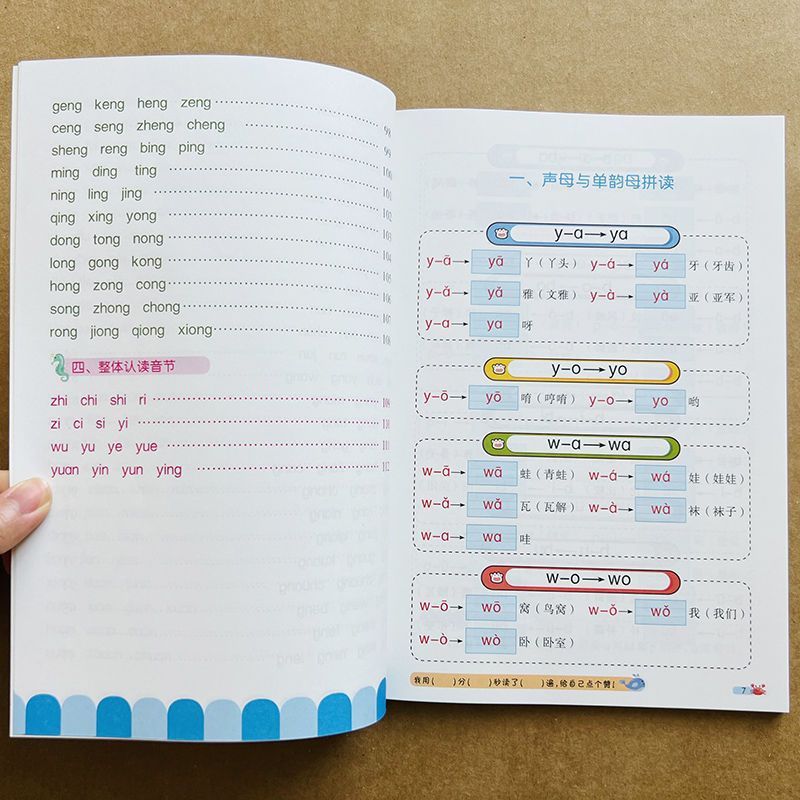 geng keng heng zeng
ceng seng zheng cheng 98
sheng reng bing ping 99
ming ding ting 100
ning ling jing 101
qing xing yong 102
dong tong nong 103
long gong kong 104
hong zong cong 105
song zhong chong 106
rong jiong qiong xiong 108
四、整体认读音节
zhi chi shi ri 109
zi ci si yi 110
wu yu ye yue 111
yuan yin yun ying 112
一、声母与单韵母拼读
y-a→ya
y-ā→ yā 丫(丫头) y-á→ yá 牙(牙齿)
y-ǎ→ yǎ 雅(文雅) y-à→ yà 亚(亚军)
y-a→ ya 呀
y-o→yo
y-ō→ yō 唷(哼唷) y-o→ yo 哟
w-a→wa
w-ā→ wā 蛙(青蛙) w-á→ wá 娃(娃娃)
w-ǎ→ wǎ 瓦(瓦解) w-à→ wà 袜(袜子)
w-a→ wa 哇
w-o→wo
w-ō→ wō 窝(鸟窝) w-ǒ→ wǒ 我(我们)
w-ò→ wò 卧(卧室)
我用( )分( )秒读了( )遍,给自己点个赞!
7